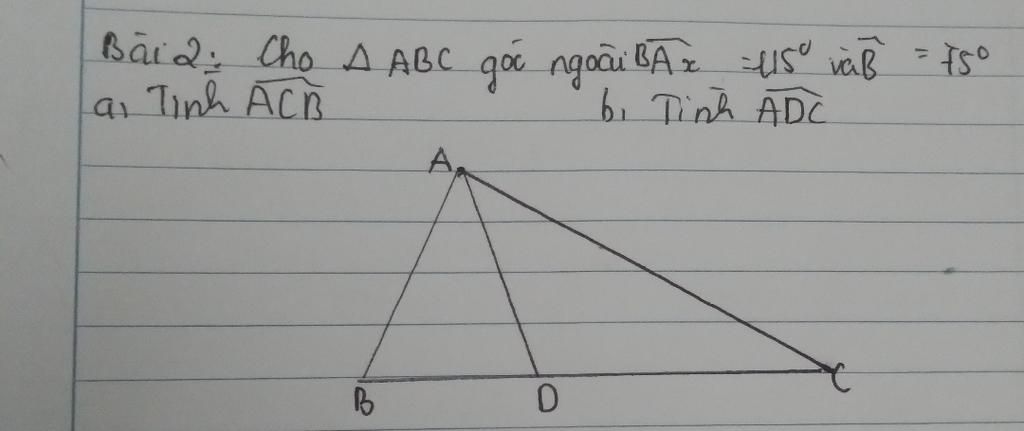 Bài 2: Cho Δ ABC góc ngoài BAx = 115° và B = 75°
a, Tính ACB b, Tính ADC
A
B D C